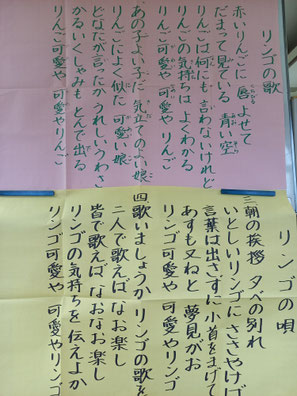 リンゴの歌
赤いりんごに 唇よせて
だまって見ている 青い空
りんごは何にも 言わないけれど
りんごの気持ちは よくわかる
りんご可愛や 可愛やりんご
あの子よい子だ 気立てのよい娘
りんごによく似た 可愛い娘
どなたが言ったか うれしいうわさ
かるいくしゃみも とんで出る
りんご可愛や 可愛やりんご
リンゴの唄
三 朝の挨拶 夕べの別れ
いとしいリンゴに ささやけば
言葉は出さずに 小首をまげて
あすも又ねと 夢見がお
リンゴ可愛や 可愛やリンゴ
四 歌いましょうか リンゴの歌を
二人で歌えば なお楽し
皆で歌えば なおなお楽し
リンゴの気持ちを 伝えよか
リンゴ可愛や 可愛やリンゴ